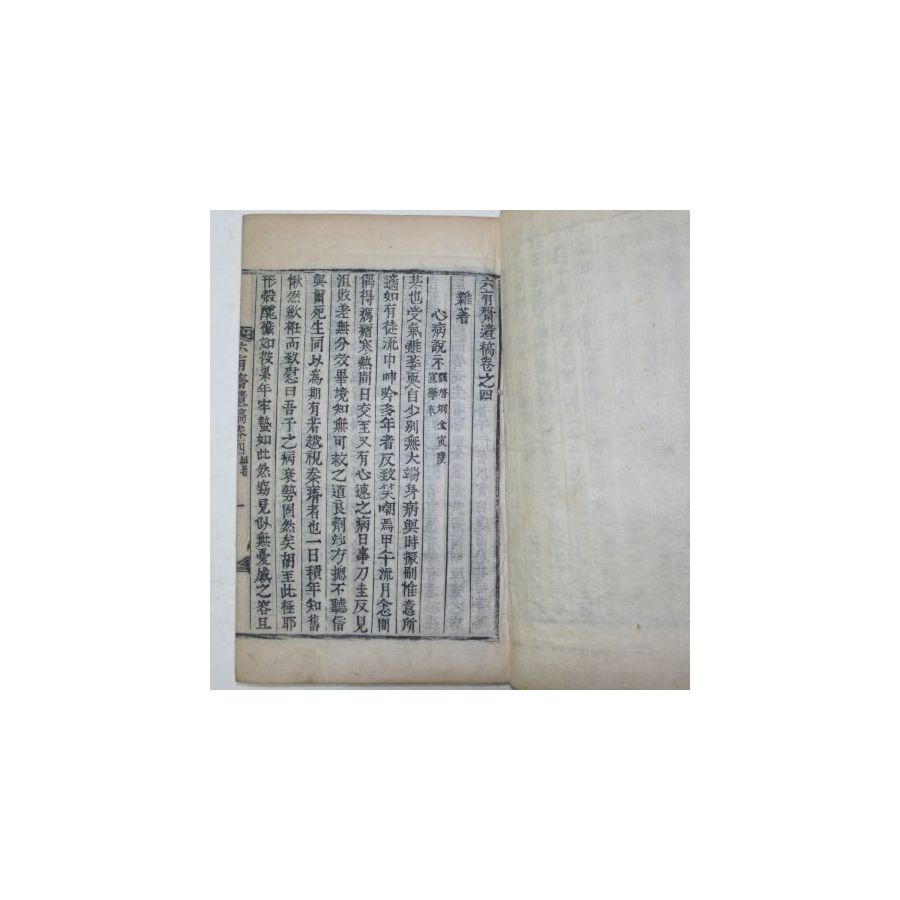 六有齋遺稿卷之四
雜著
心病說示
某也受氣雖萎爽自少別無大端身病與時振刷惟意所
適如有徒流中呻吟多年者反致笑嘲焉甲午流月念間
偶得癘瘤寒熱間日交至又有心速之病日事刀圭反見
沮敗差無分效畢境知無可救之道良劑妙方摠不聽信
與爾死生同以為期有若越視秦瘠者也一日積年知舊
愀然斂袵而致慰曰吾子之病衰勢固然矣胡至此極耶
形殼醜如役累年牢蟄如此然窃見似無憂慼之容且
六有齋遺稿卷四 雜著 一